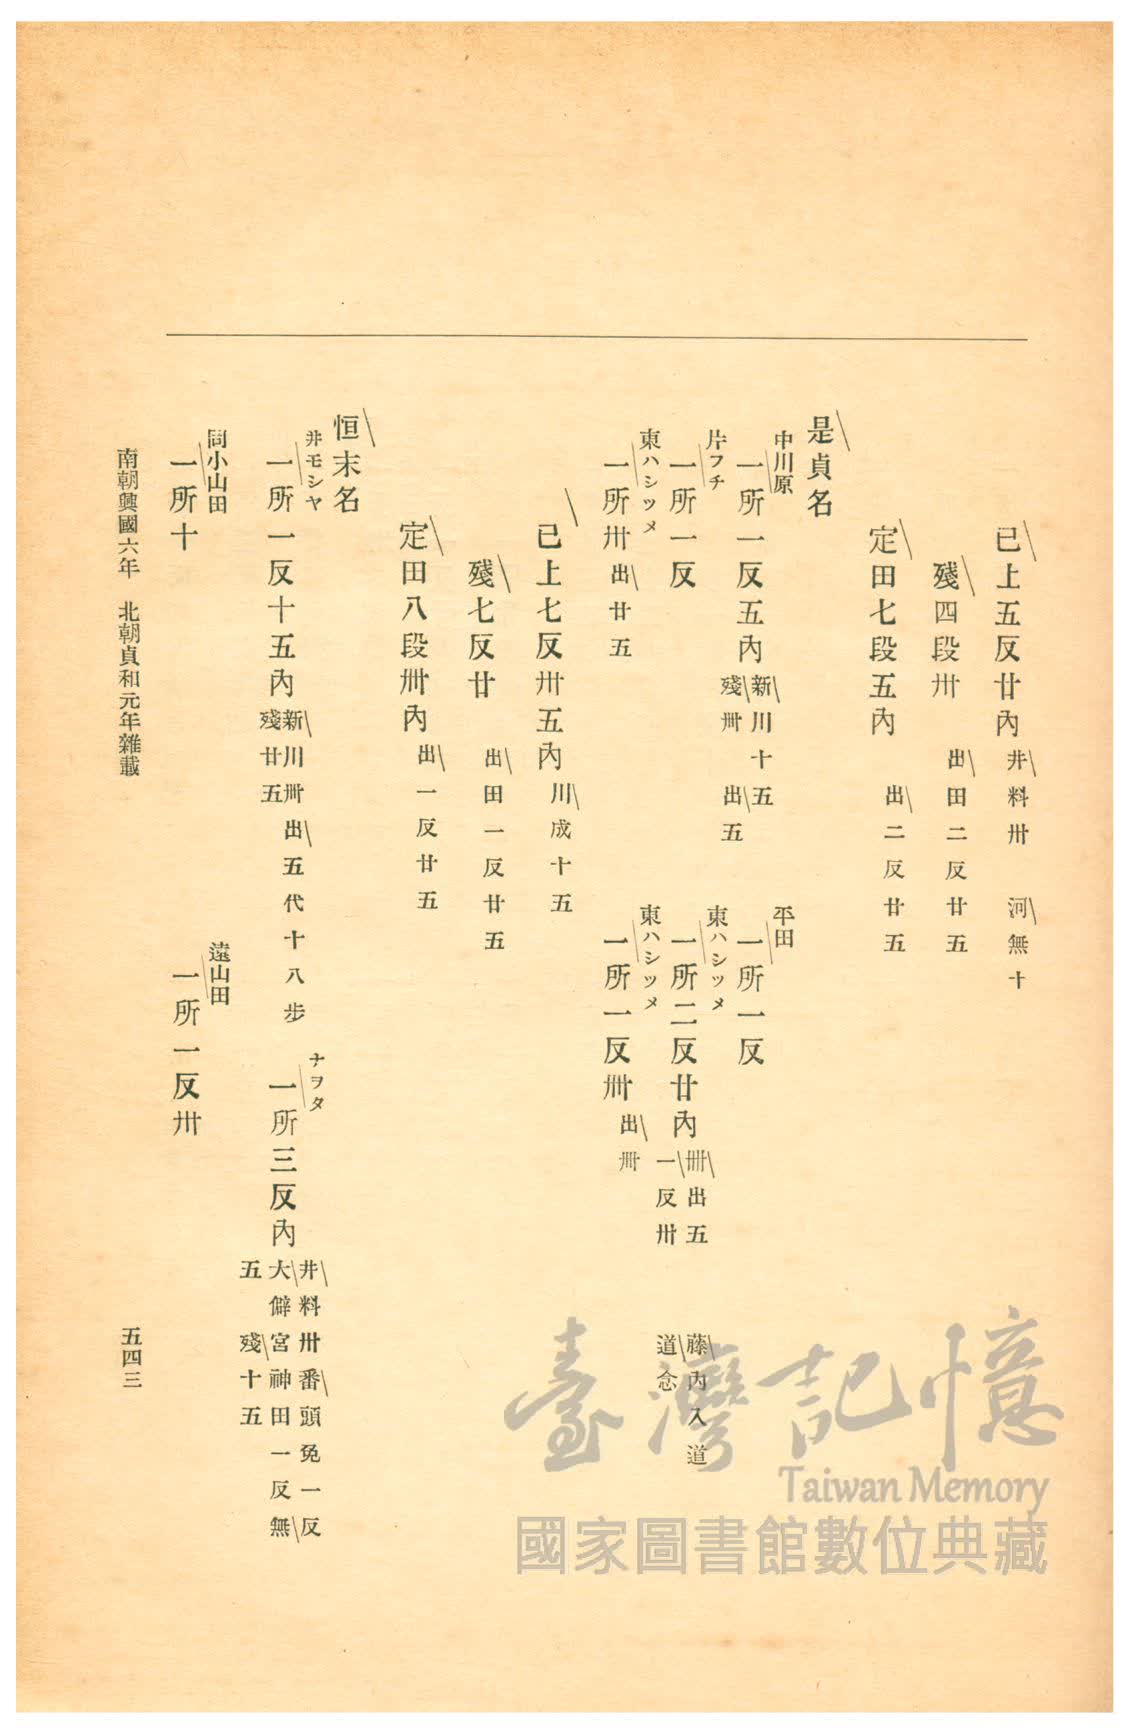 已上五反廿內 井料卅 河無十
殘四段卅 出田二反廿五
定田七段五內 出二反廿五
是貞名
中川原 平田
一所一反五內 新川十五 一所一反
殘卌 出五
片フチ 東ハシツメ
一所一反 一所二反廿內 卌出五 藤內入道
一反卅 道念
東ハシツメ 東ハシツメ
一所卅 出廿五 一所一反卌 出卌
已上七反卅五內 川成十五
殘七反廿 出田一反廿五
定田八段卌內 出一反廿五
恒末名
井モシヤ ナヲタ
一所一反十五內 新川卌 出五代十八步 一所三反內 井料卅番頭免一反
殘廿五 大僻宮神田一反無
五 殘十五
同小山田 遠山田
一所十 一所一反卅
南朝興國六年 北朝貞和元年雜載 五四三
臺灣記憶
Taiwan Memory
國家圖書館數位典藏